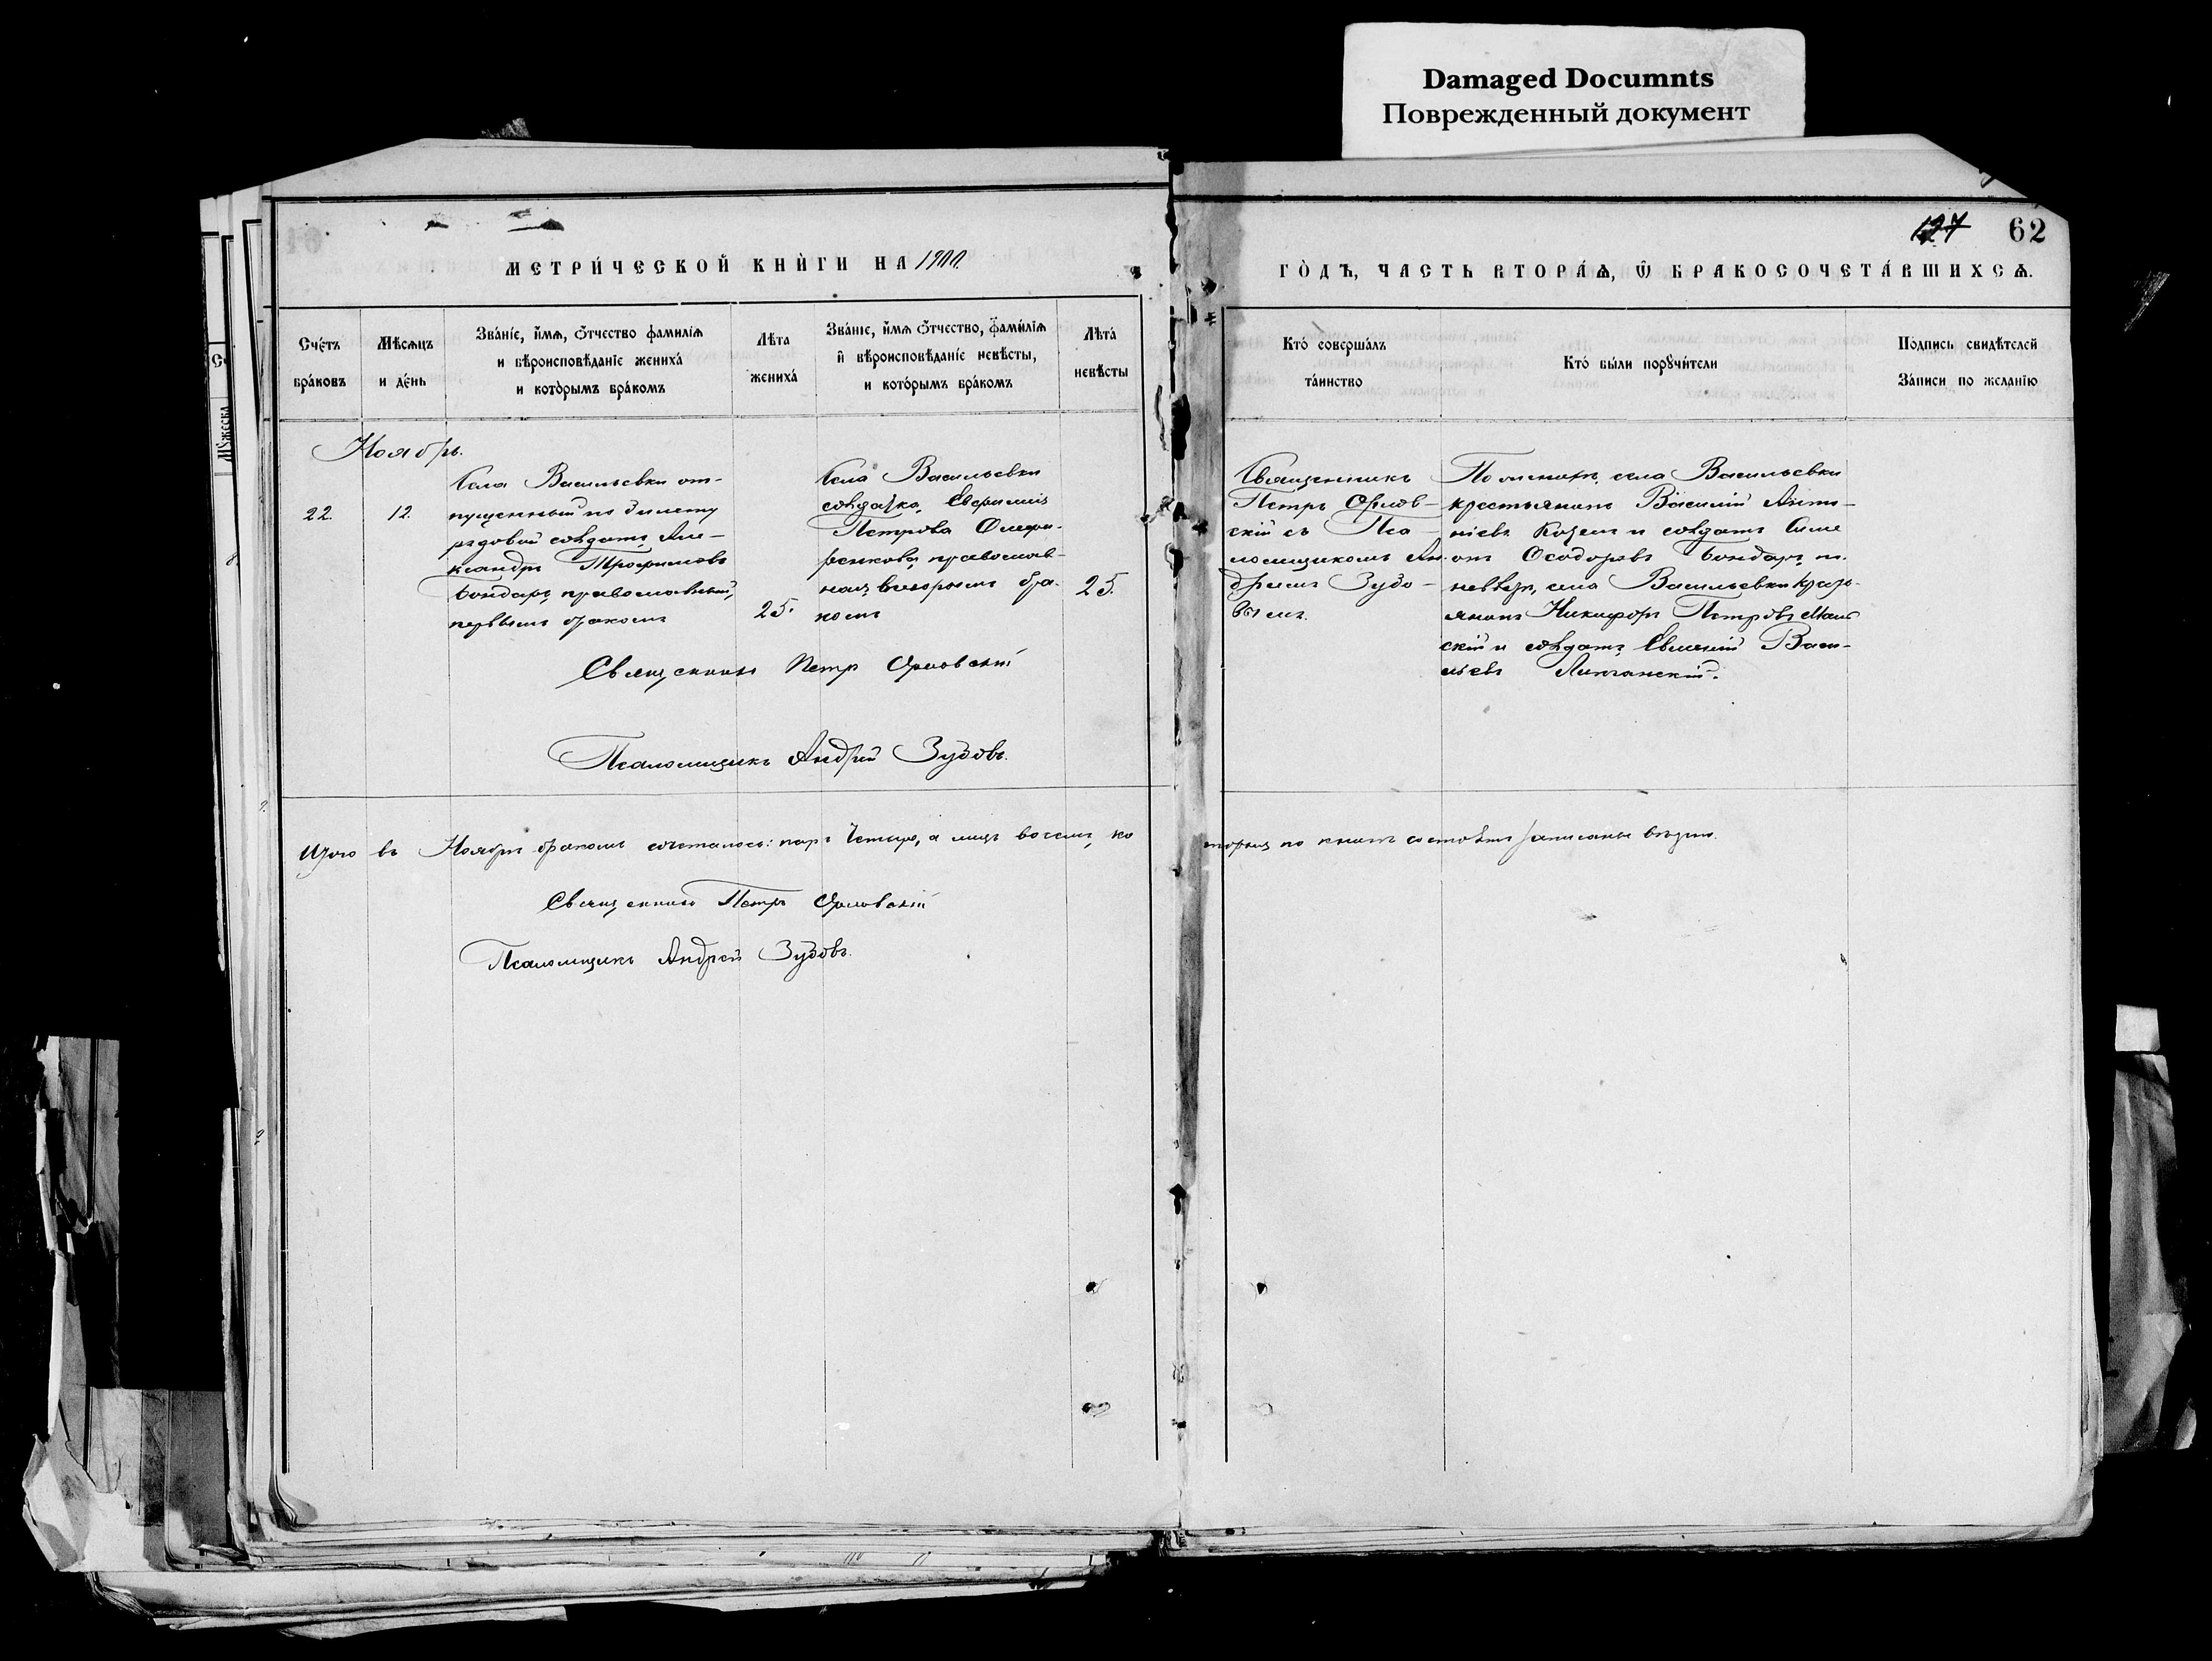 Damaged Documnts
Поврежденный документ
127 62
МЕТРИ́ЧЕСКОЙ КНИ́ГИ НА 1900
ГО́ДЪ, ЧАСТЬ ВТОРА́Ѧ, Ѡ҆ БРАКОСОЧЕТА́ВШИХСѦ.
Сче́тъ
бра́ковъ
Мѣ́сѧцъ
и де́нь
Зва́нїе, и҆́мѧ, ѻ҆́тчество фамилїѧ
и вѣроисповѣ́данїе жениха́
и кото́рымъ бра́комъ
Лѣта
жениха́
Зва́нїе, и҆́мѧ ѻ҆́тчество, фами́лїѧ
и҆ вѣроисповѣ́данїе невѣ́сты,
и кото́рымъ бра́комъ
Лѣта́
невѣ́сты
Кто́ соверша́лъ
та́инство
Кто́ бы́ли порꙋчи́тели
По́дпись свидѣ́телей
За́писи по жела́нїю
Ноябрь.
22.
12.
Села Васильевки от-
пущенный по билету
рядовой солдатъ Але-
ксандръ Трофимовъ
Бондарь, православный,
первымъ бракомъ
25.
Села Васильевки
солдатка Евфимия
Петрова Олефи-
ренкова, православ-
ная, вторымъ бра-
комъ
25.
Священникъ
Петръ Орлов-
скій съ Пса-
ломщикомъ Ан-
дреемъ Зубо-
вымъ.
По женихѣ, села Васильевки
крестьянинъ Василій
и солдатъ Симе
онъ Ѳеодоровъ Бондарь, по
невѣстѣ, села Васильевки кресть-
янинъ Никифоръ Петровъ
скій и солдатъ Евгеній Васи-
льевъ
Священникъ Петръ Орловскій
Псаломщикъ Андрей Зубовъ.
Итого въ Ноябрѣ бракомъ сочеталось: паръ четыре, а лицъ восемь, ко
торыя по книгѣ записаны вѣрно.
Священникъ Петръ Орловскій
Псаломщикъ Андрей Зубовъ.